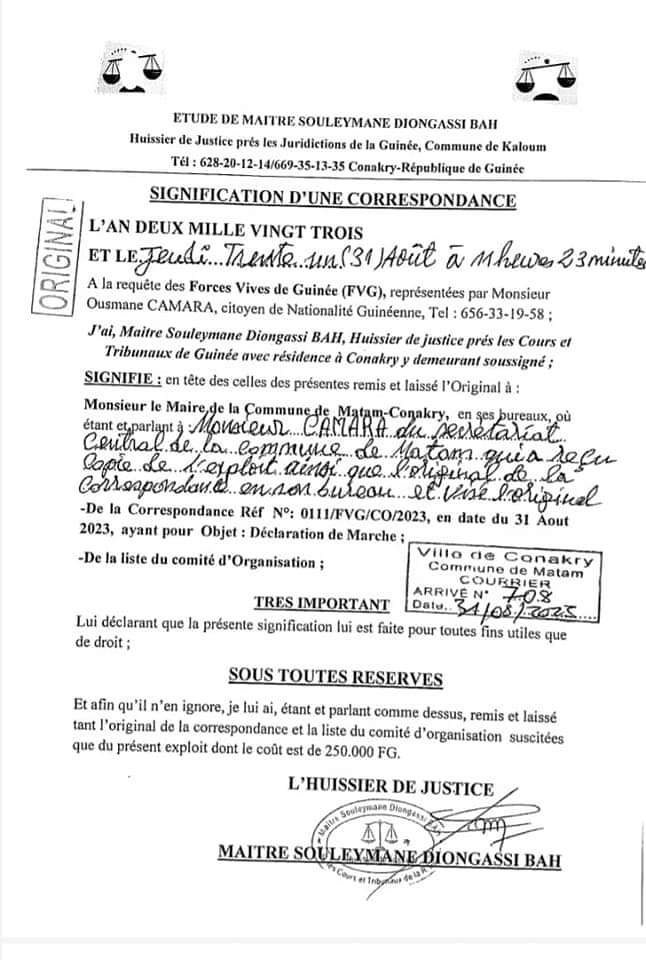 ETUDE DE MAITRE SOULEYMANE DIONGASSI BAH
Huissier de Justice prés les Juridictions de la Guinée, Commune de Kaloum
Tél : 628-20-12-14/669-35-13-35 Conakry-République de Guinée
SIGNIFICATION D'UNE CORRESPONDANCE
ORIGINAL
L'AN DEUX MILLE VINGT TROIS
ET LE Jeudi Trente un (31) Août à 11 heures 23 minutes
A la requête des Forces Vives de Guinée (FVG), représentées par Monsieur
Ousmane CAMARA, citoyen de Nationalité Guinéenne, Tel : 656-33-19-58 ;
J'ai, Maitre Souleymane Diongassi BAH, Huissier de justice prés les Cours et
Tribunaux de Guinée avec résidence à Conakry y demeurant soussigné ;
SIGNIFIE : en tête des celles des présentes remis et laissé l'Original à :
Monsieur le Maire de la Commune de Matam-Conakry, en ses bureaux, où
étant et parlant à Monsieur CAMARA du secrétariat
Central de la Commune de Matam qui a reçu
Copie de l'exploit ainsi que l'original de la
Correspondance en son bureau et visé l'original
-De la Correspondance Réf N°: 0111/FVG/CO/2023, en date du 31 Aout
2023, ayant pour Objet : Déclaration de Marche ;
-De la liste du comité d'Organisation ;
Ville de Conakry
Commune de Matam
COURRIER
ARRIVÉ N° 708
Date. 31/08/2023
TRES IMPORTANT
Lui déclarant que la présente signification lui est faite pour toutes fins utiles que
de droit ;
SOUS TOUTES RESERVES
Et afin qu'il n'en ignore, je lui ai, étant et parlant comme dessus, remis et laissé
tant l'original de la correspondance et la liste du comité d'organisation suscitées
que du présent exploit dont le coût est de 250.000 FG.
L'HUISSIER DE JUSTICE
Maitre Souleymane Diongassi
MAITRE SOULEYMANE DIONGASSI BAH
Cours et Tribunaux de la